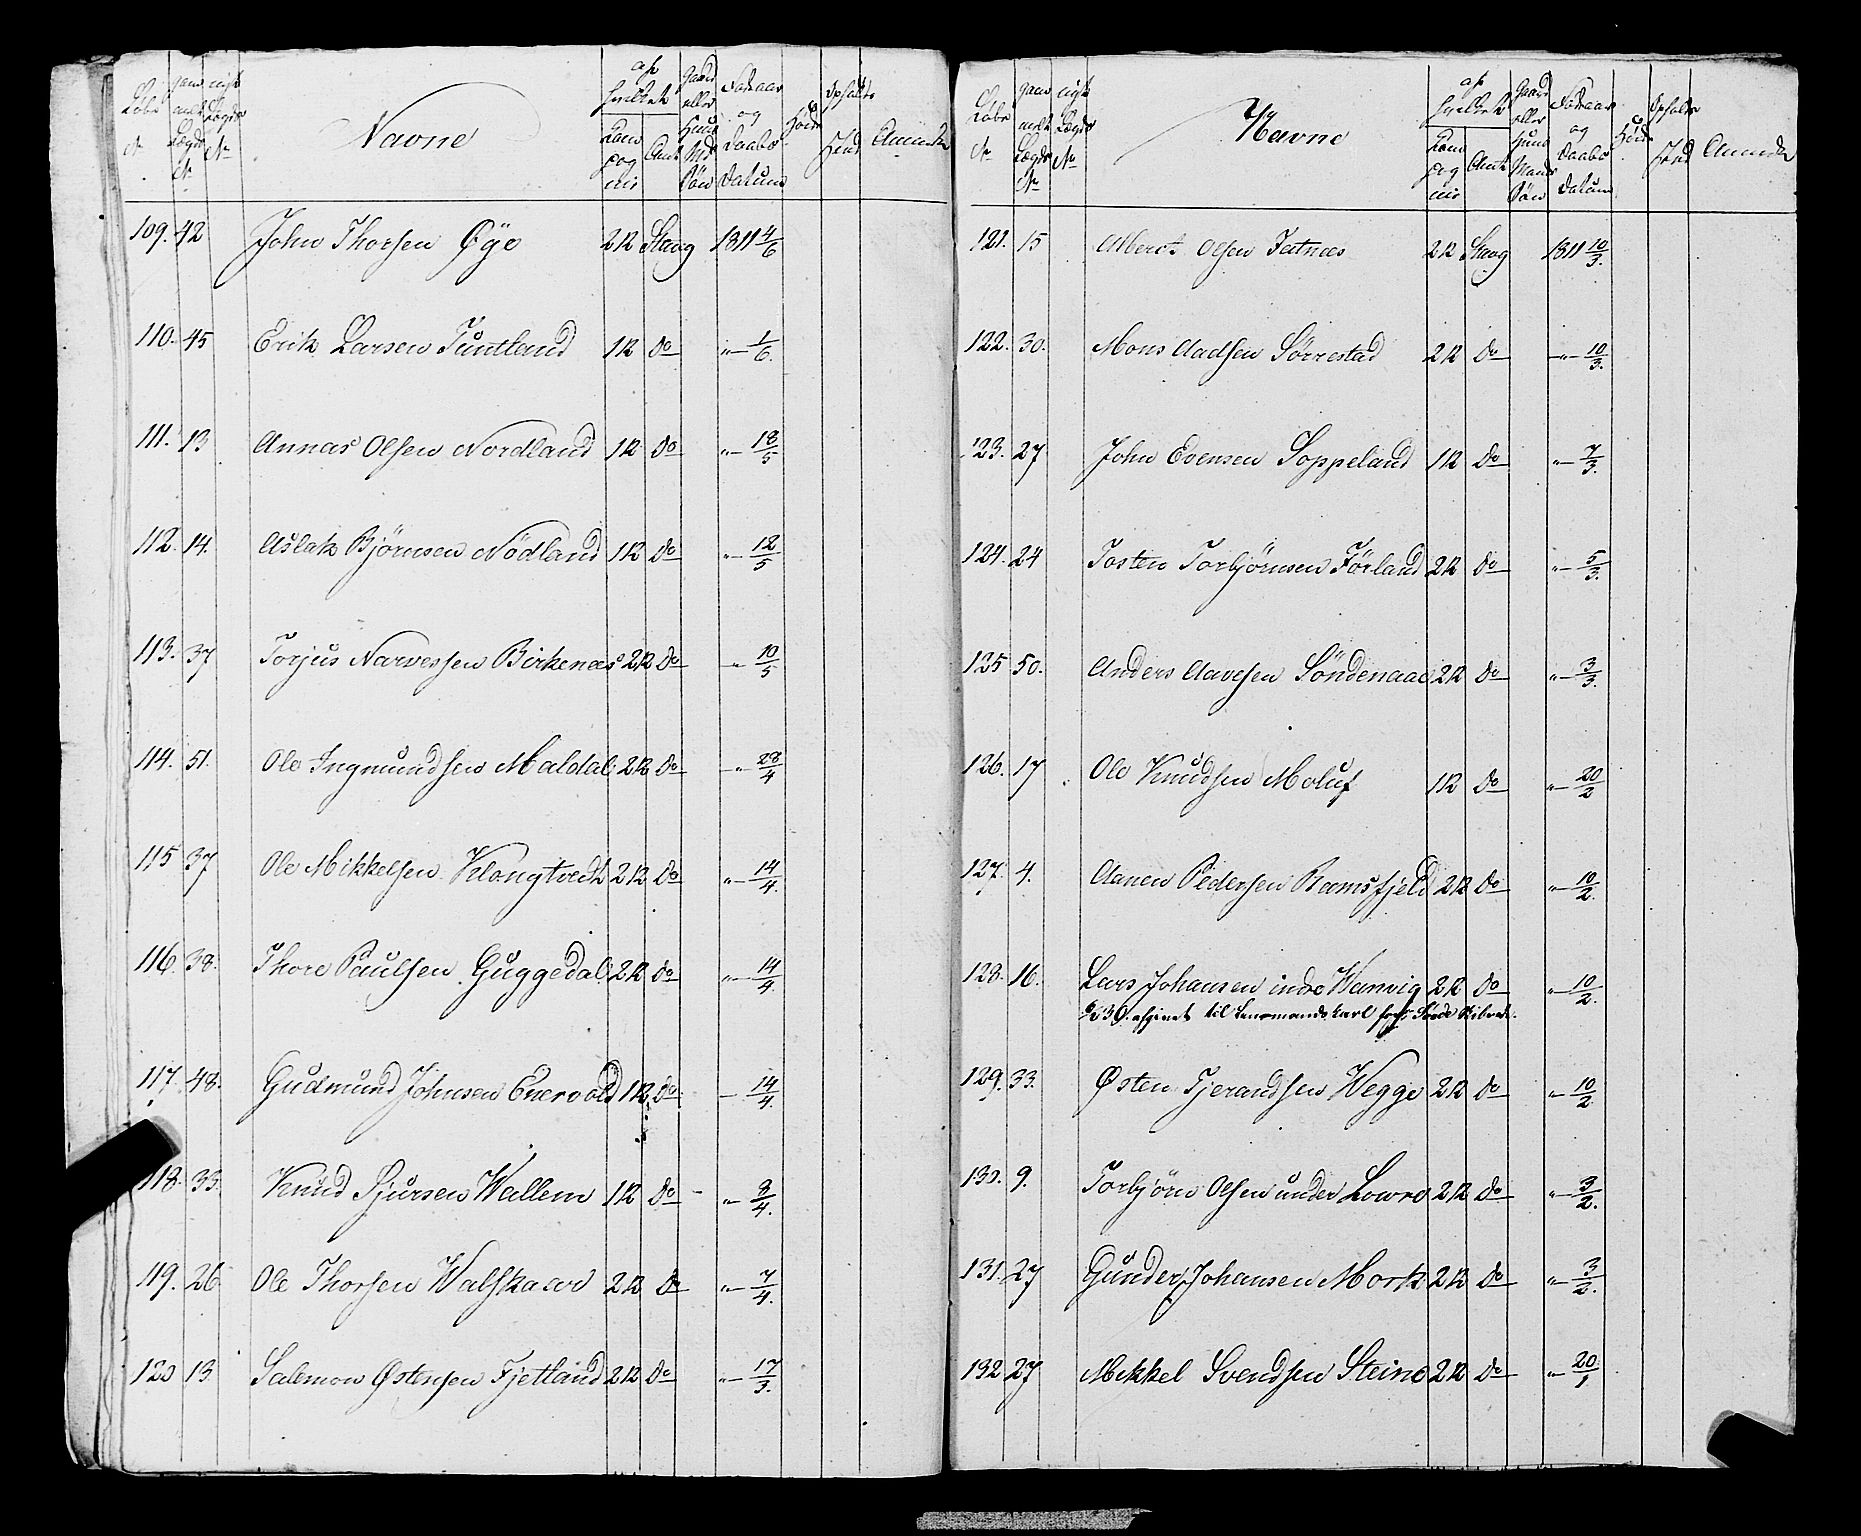 Løbe № | gaml. ... Lægds № | nyt Lægds № | Navne | af hvilket Kompagnie | Amt | Gaard eller Huus Md Søn | Fødeaar og Daabs Datum | Høide | Opholds Sted | Anmerk
109. 42 John Thorsen Øye 2 R Stavg 1811 4/6
110. 45 Erik Larsen Tuntland 1 R do „ 1/6.
111. 13 Annas Olsen Nordland 1 R do „ 18/5
112. 14. Aslak Bjørnsen Nødland 1 R do „ 12/5
113. 37 Torjus Narvessen Birkenæs 2 R do „ 10/5
114. 51. Ole Ingmundsen Maldal 2 R do „ 28/4
115 37 Ole Mikkelsen Klongtvedt 2 R do „ 14/4.
116. 38. Thore Paulsen Guggedal 2 R do „ 14/4.
117. 48. Gudmund Johnsen Enervold 1 R do 14/4.
118. 33. Knud Sjursen Wallem 1 R do „ 8/4.
119. 26 Ole Thorsen Walskaar 2 R do „ 7/4.
120 13 Salemon Østensen Fjetland 2 R do „ 17/3.
Løbe № | gaml. Lægds № | nyt Lægds № | Navne | af hvilket Kompagnie | Amt | Gaard eller Huus Mands Søn | Fødeaar og Daabs Datum | Høide | Opholds Sted | Anmerk
121. 15 Albert Olsen Tatnæs 2 R Stavg 1811 10/3.
122. 30. Mons Aadsen Sørrestad 2 R do „ 10/3.
123. 27 John Evensen Soppeland 1 R do „ 7/3.
124. 24 Tosten Torbjørnsen Førland 2 R do „ 5/3.
125 50. Anders Aavesen Søndenaae 2 R do „ 3/3.
126. 17 Ole Knudsen Moluf 1 R do „ 20/2
127. 4. Aanen Pedersen Ramsfjeld 2 R do „ 10/2.
128. 16. Lars Johansen indre Wanvig 2 R do „ 10/2.
30. afgivet til Lensmandskarl
129. 33. Østen Tjerandsen Wegge 2 R do „ 10/2
130. 9. Torbjørn Olsen under Lowre 2 R do „ 3/2.
131. 27 Gunder Johansen Mork 2 R do „ 3/2.
132 27 Mekkel Svendsen Steine 2 R do „ 20/1